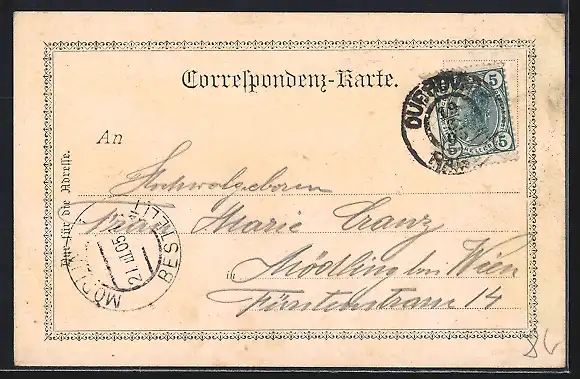 Correspondenz-Karte.
5
5
An
Nur für die Adresse.
Hochwolgeboren
Frau Marie Cranz
in Mödling bei Wien
Fürstenstrasse 14
BESTELLT
21 III 05
86